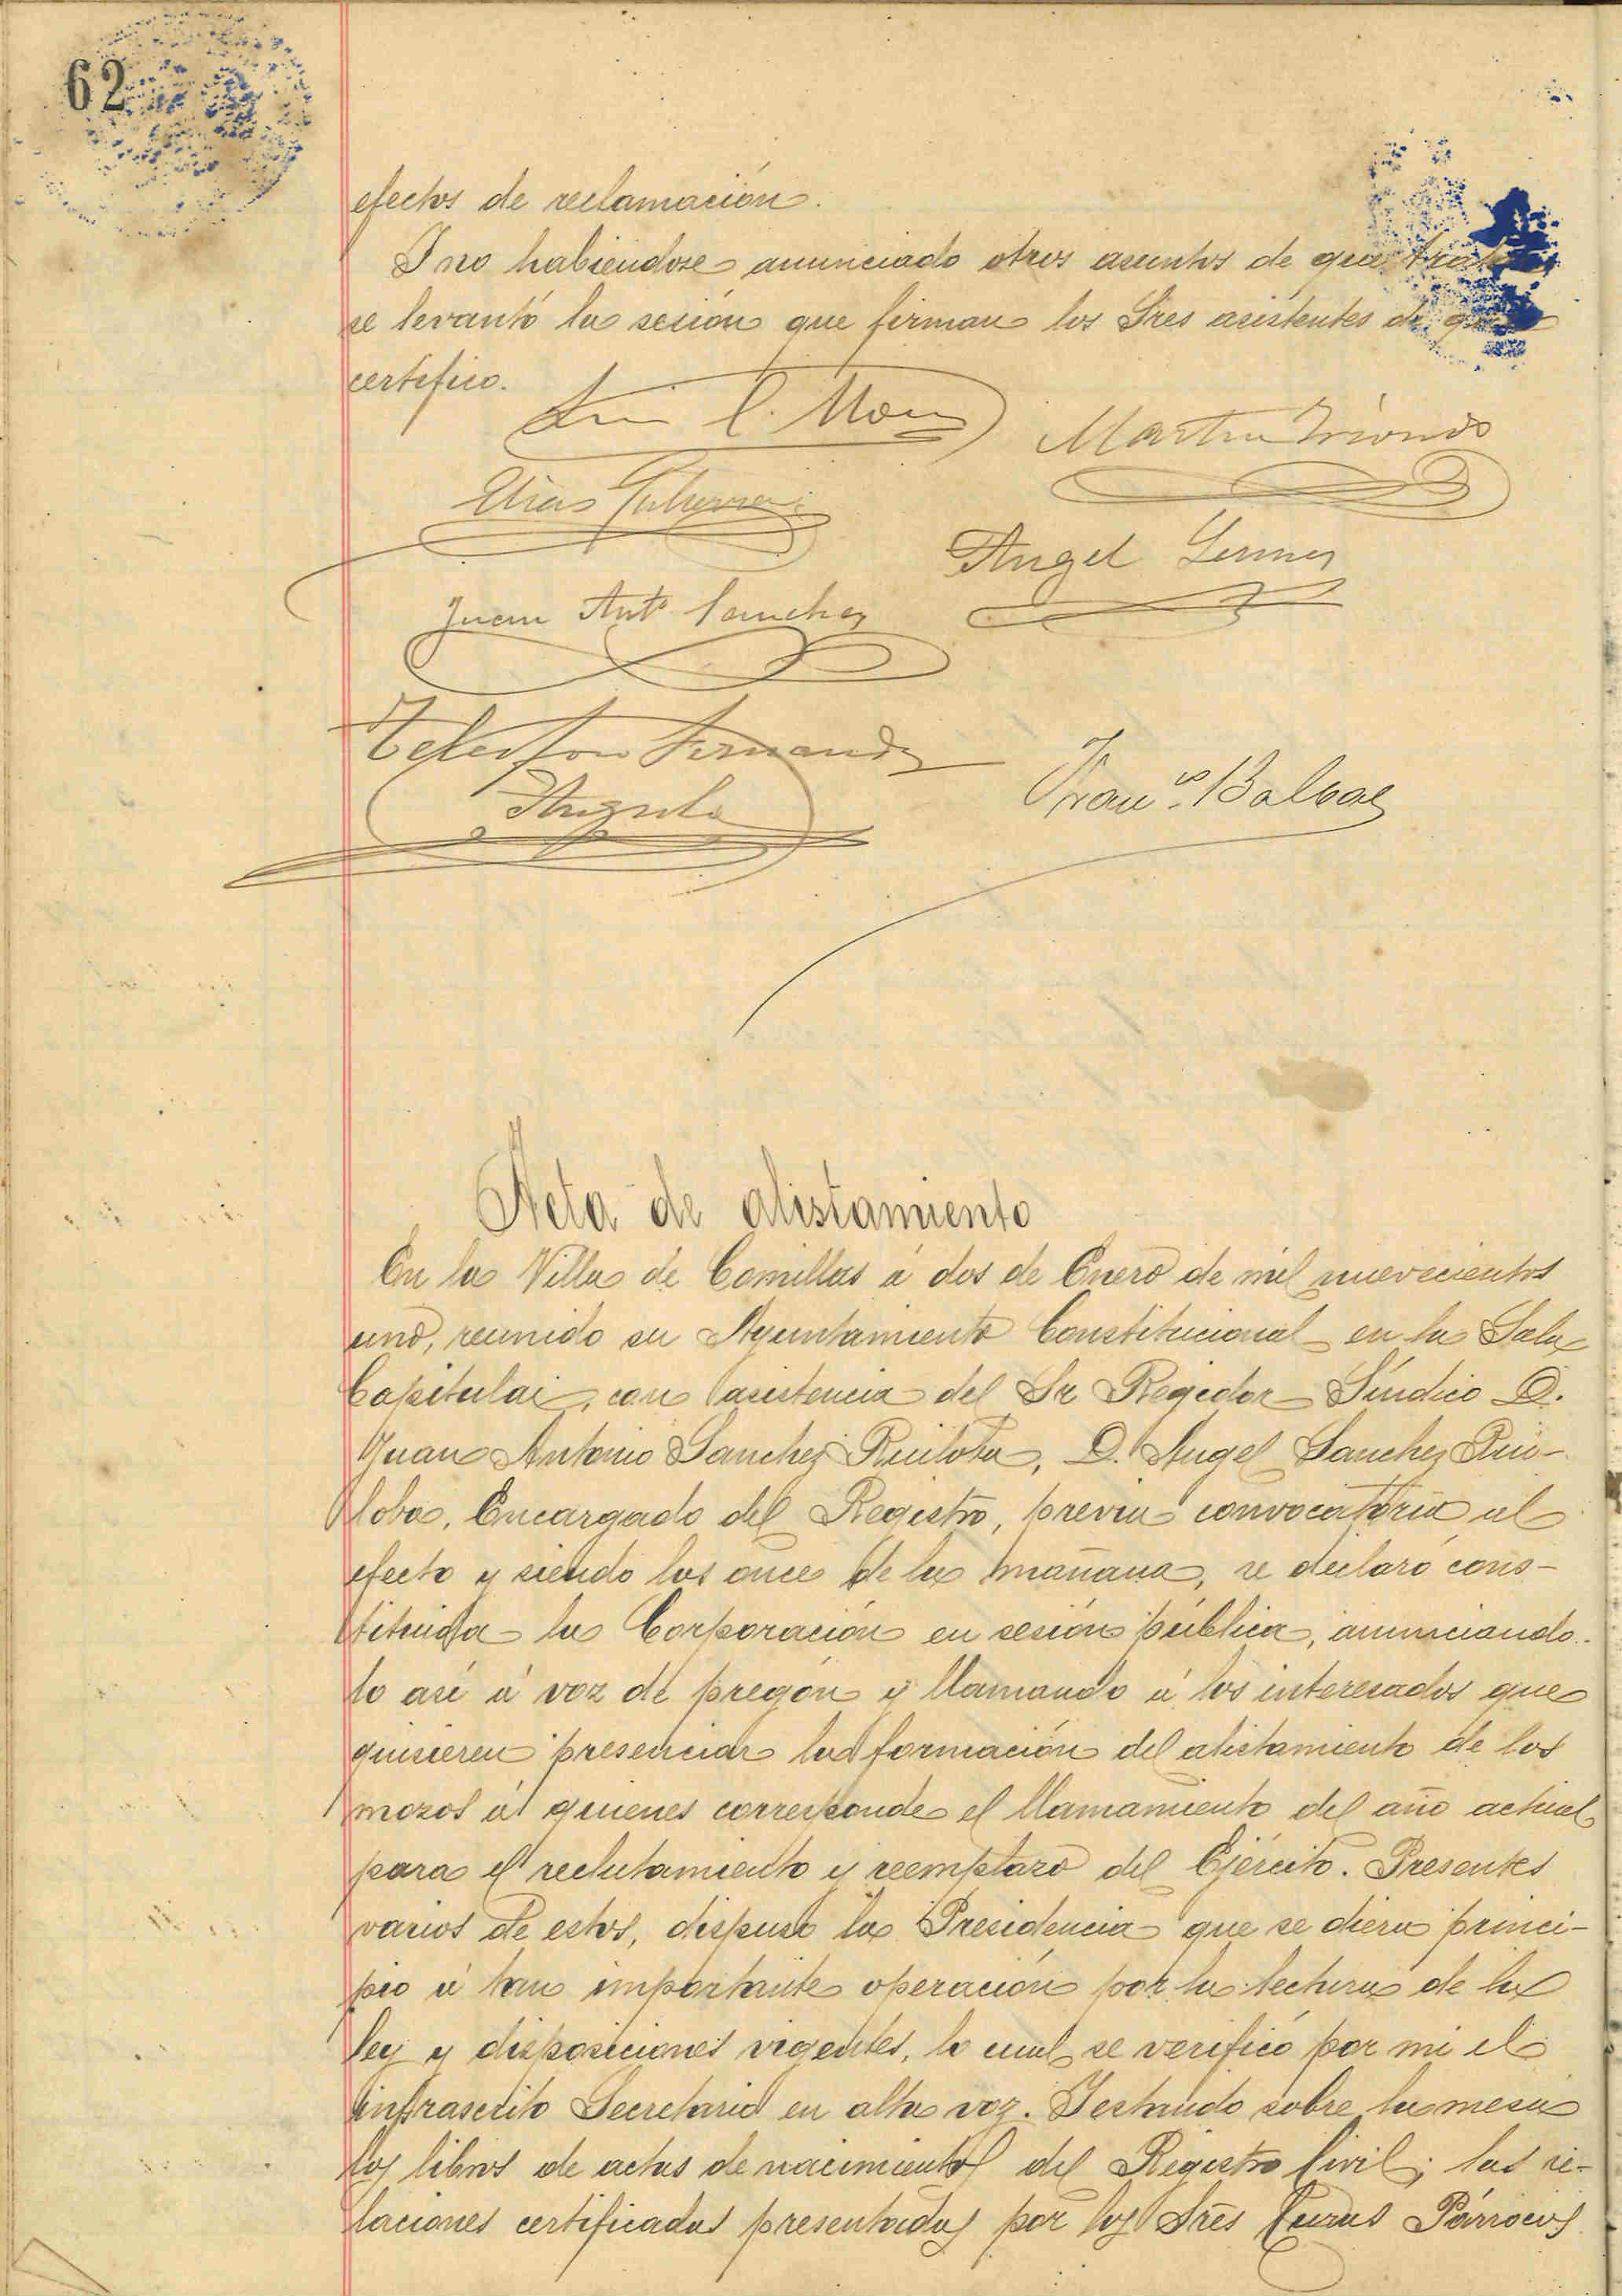 62
efectos de reclamación.
Y no habiendose anunciado otros asuntos de que tratar
se levantó la sesión que firman los Sres asistentes de que
certifico.
Martin Triondo
Elias Gutierrez
Angel
Juan Antº Sanchez
Telesforo Fernandez
Angulo
Franco. Balbas
Acta de alistamiento
En la Villa de Comillas á dos de Enero de mil nuevecientos
uno, reunido su Ayuntamiento Constitucional en la Sala
Capitular, con asistencia del Sr Regidor Síndico D.
Juan Antonio Sanchez Ruiloba, D. Angel Sanchez Rui-
loba, Encargado del Registro, previa convocatoria al
efecto y siendo las once de la mañana, se declaró cons-
tituida la Corporación en sesión pública, anunciando-
lo asi á voz de pregón y llamando á los interesados que
quisieren presenciar la formación del alistamiento de los
mozos á quienes corresponde el llamamiento del año actual
para el reclutamiento y reemplazo del Ejército. Presentes
varios de estos, dispuso la Presidencia que se diera princi-
pio á tan importante operación por la lectura de la
ley y disposiciones vigentes, lo cual se verificó por mi el
infrascrito Secretario en alta voz. Y estando sobre la mesa
los libros de actas de nacimientos del Registro Civil; las re-
laciones certificadas presentadas por los Sres Curas Párrocos